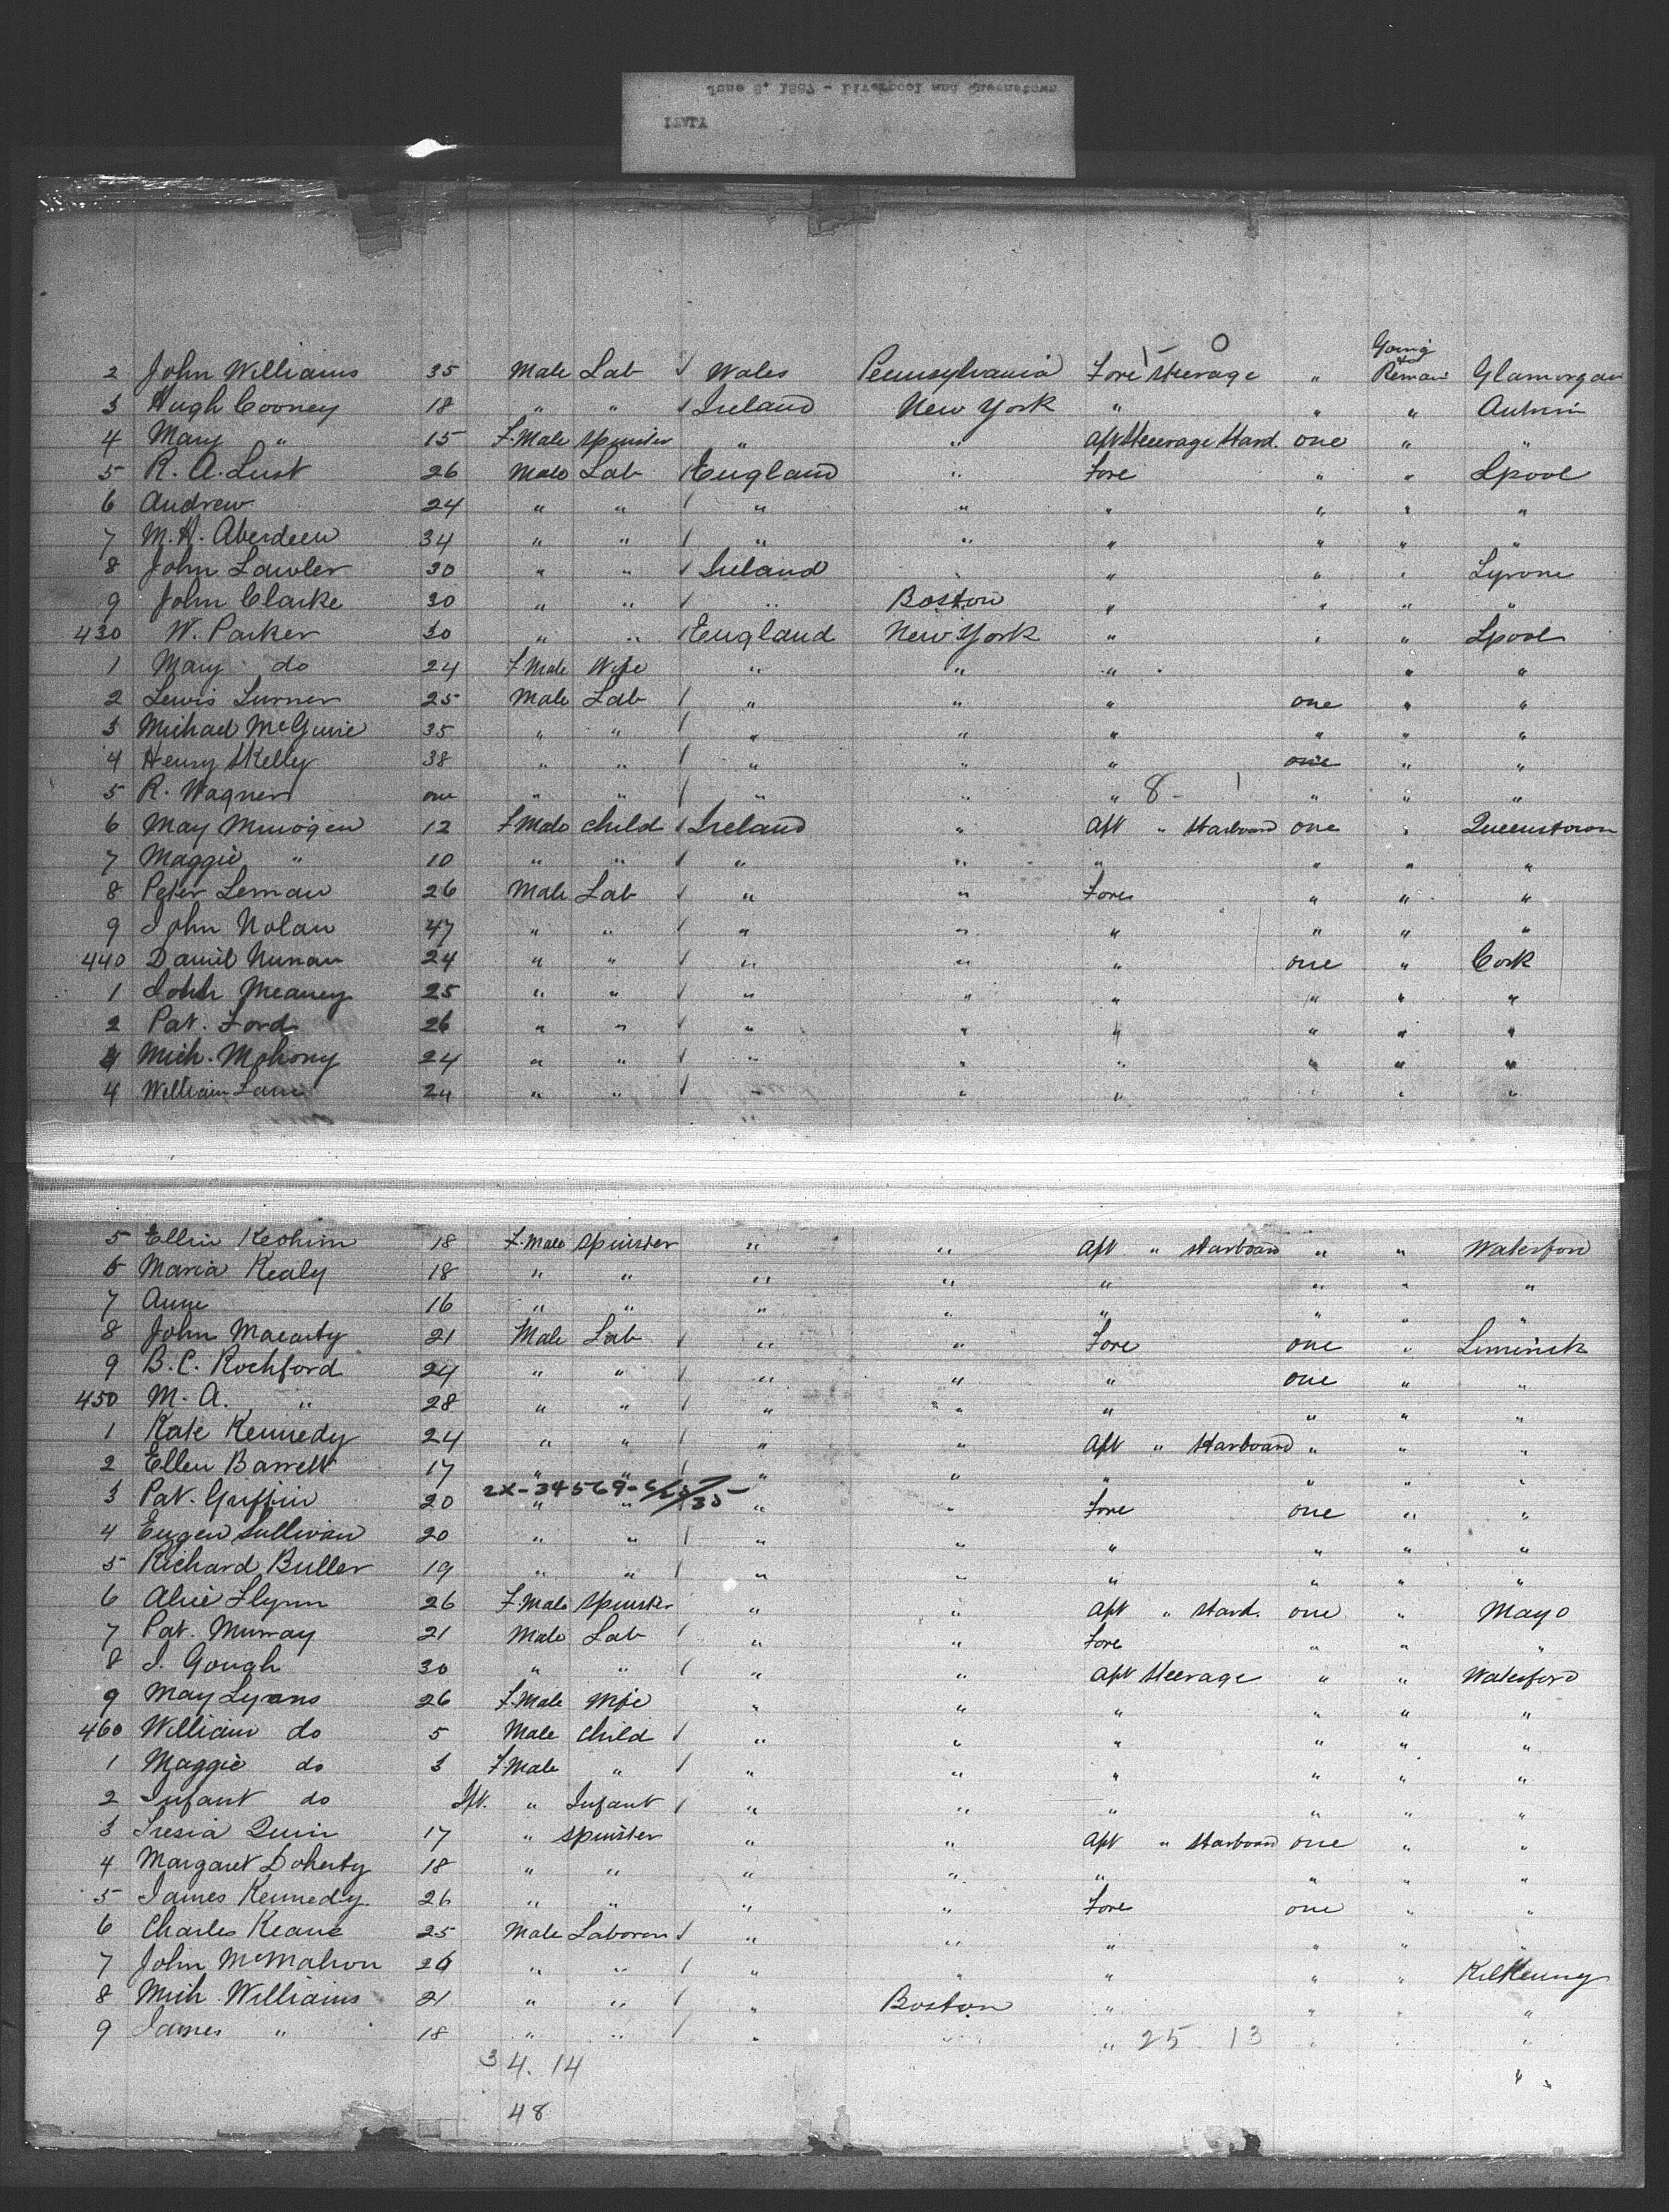 June 6, 1887 - Liverpool and Queenstown
ITALY
Going
to
2 John Williams 35 Male Lab √ Wales Pennsylvania Fore Steerage " Remain Glamorgan
3 Hugh Cooney 18 " " √ Ireland New York " " " Antrim
4 Mary " 15 F.Male Spinster " " Aft Steerage Stard. one " "
5 R. A. Lust 26 Male Lab / England " Fore " " Lpool
6 Andrew 24 " " / " " " " " "
7 M. H. Aberdeen 34 " " / " " " " " "
8 John Lawler 30 " " √ Ireland " " " " Tyrone
9 John Clarke 30 " " / " Boston " " " "
430 W. Parker 30 " " / England New York " " " Lpool
1 Mary do 24 F.Male Wife " " " " "
2 Lewis Turner 25 Male Lab / " " " one " "
3 Michael McGuire 35 " " / " " " " "
4 Henry Skelly 38 " " / " " " one " "
5 R. Wagner one " " / " " " 8 - 1 " " "
6 May 12 F.Male child √ Ireland " Aft " Starboard one " Queenstown
7 Maggie " 10 " " √ " " " " " "
8 Peter Lernan 26 Male Lab √ " " Fore " " "
9 John Nolan 47 " " √ " " " " " "
440 Daniel Nunan 24 " " √ " " " one " Cork
1 John Meaney 25 " " √ " " " " " "
2 Pat. Ford 26 " " √ " " " " " "
4 Mich. Mohony 24 " " √ " " " " " "
4 William Lane 24 " " √ " " " " " "
5 Ellin Keohim 18 F.Male Spinster " " Aft " Starboard " " Waterford
6 Maria Kealy 18 " " " " " " " "
7 Anne 16 " " " " " " " "
8 John Macarty 21 Male Lab / " " Fore one " Limerick
9 B. C. Rochford 24 " " / " " " one " "
450 M. A. " 28 " " / " " " " " "
1 Kate Kennedy 24 " " / " " Aft " Starboard " " "
2 Ellen Barrett 17 " " / " " " " " "
2X-34569-
3 Pat. Griffin 20 " " / " " Fore one " "
4 Eugen Sullivan 20 " " / " " " " " "
5 Richard Butler 19 " " / " " " " " "
6 Alice Flynn 26 F.Male Spinster " " Aft " Stard. one " Mayo
7 Pat. Murray 21 Male Lab / " " Fore " " "
8 J. Gough 30 " " / " " Aft Steerage " " Waterford
9 May Lyons 26 F.Male Wife " " " " " "
460 William do 5 Male Child / " " " " " "
1 Maggie do 3 F.Male " / " " " " " "
2 Infant do Ift. " Infant / " " " " " "
3 Tresia Quin 17 " Spinster " " Aft " Starboard one " "
4 Margaret Doherty 18 " " " " " " " "
5 James Kennedy 26 " " " " Fore one " "
6 Charles Keane 25 Male √ " " " " " "
7 John McMahon 26 " " / " " " " " Kilkenny
8 Mich. Williams 21 " " / " Boston " " " "
9 James " 18 " " / " " " 25 13 " "
34. 14 "
48